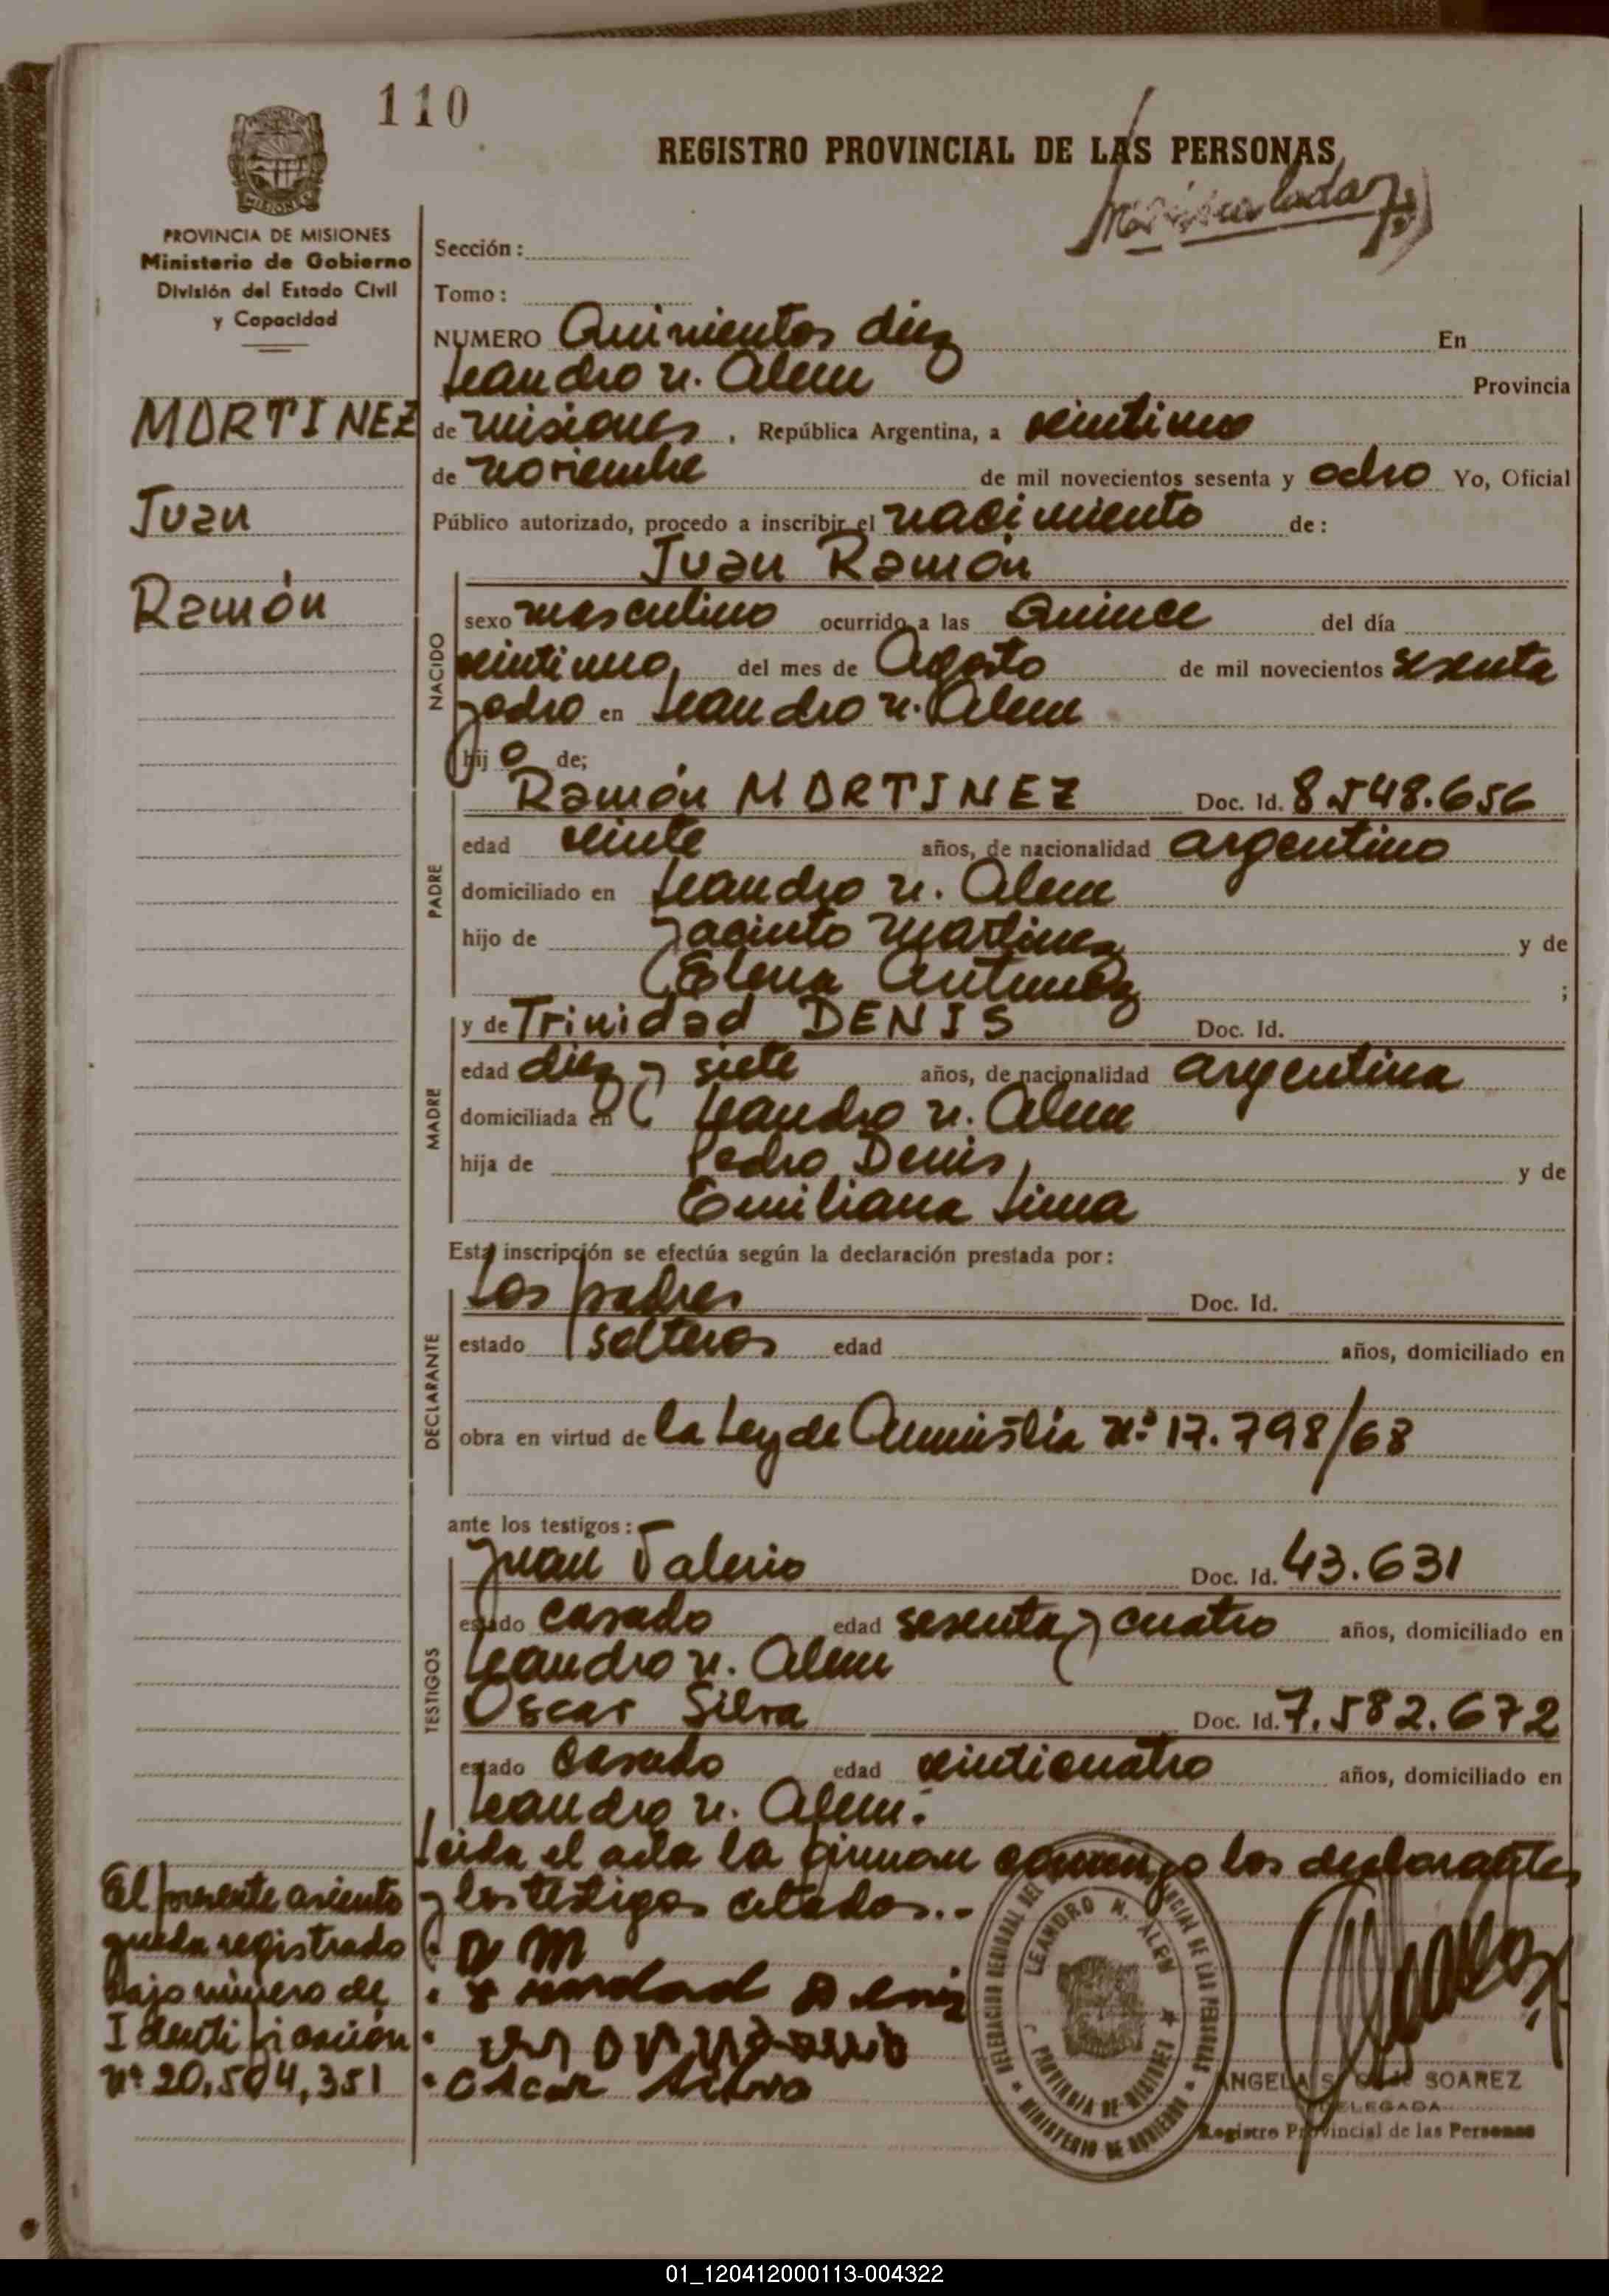 110
REGISTRO PROVINCIAL DE LAS PERSONAS
MISIONES
PROVINCIA DE MISIONES
Ministerio de Gobierno
División del Estado Civil
y Capacidad
MARTINEZ
Juan
Ramón
Sección:
Tomo:
NUMERO Quinientos diez En
Leandro N. Alem Provincia
de Misiones, República Argentina, a veintiuno
de noviembre de mil novecientos sesenta y ocho Yo, Oficial
Público autorizado, procedo a inscribir el nacimiento de:
Juan Ramón
NACIDO
sexo masculino ocurrido a las Quince del día
veintiuno, del mes de Agosto de mil novecientos sesenta
y ocho en Leandro N. Alem
hijo de;
PADRE
Ramón MARTINEZ Doc. Id. 8.548.656
edad veinte años, de nacionalidad argentino
domiciliado en Leandro N. Alem
hijo de Jacinto Martinez y de
Elena Antunez ;
MADRE
y de Trinidad DENIS Doc. Id.
edad diez y siete años, de nacionalidad argentina
domiciliada en Leandro N. Alem
hija de Pedro Denis, y de
Emiliana Lima
Esta inscripción se efectúa según la declaración prestada por:
DECLARANTE
Los padres Doc. Id.
estado solteros edad años, domiciliado en
obra en virtud de la Ley de Amnistia Nº 17.798/68
ante los testigos:
TESTIGOS
Juan Valerio Doc. Id. 43.631
estado casado edad sesenta y cuatro años, domiciliado en
Leandro N. Alem
Oscar Silva Doc. Id. 7.582.672
estado casado edad veinticuatro años, domiciliado en
Leandro N. Alem.
Leida el acta la firman conmigo los declarantes
y los testigos citados..-
El presente asiento
queda registrado
bajo número de
Identificación
Nº 20,504,351
Oscar Silva
LEANDRO N. ALEM
PROVINCIA DE MISIONES
MINISTERIO DE GOBIERNO
ANGELA S. SOAREZ
DELEGADA
Registro Provincial de las Personas
01_120412000113-004322